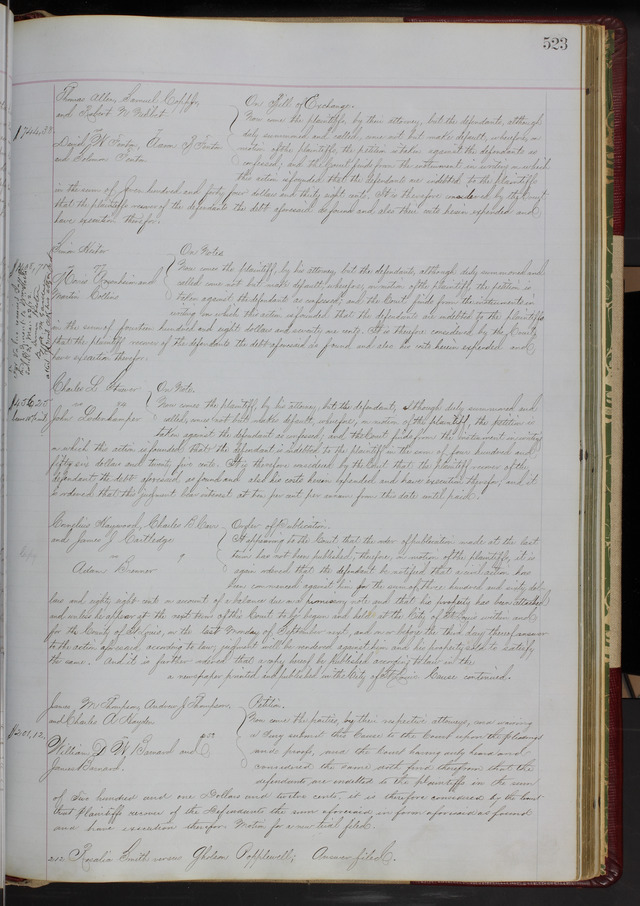 523
Thomas Allen, Samuel Copp Jr,
and Robert N. Nisbet
On Bill of Exchange.
$744.38
Now come the plaintiffs by their attorney, but the defendants, although
duly summoned and called, come not but make default; wherefore, on
David W. Fenton, F. Fenton
motion of the plaintiffs, the petition is taken against the defendants as
and Solomon Fenton
confessed; and the Court finds from the instrument in writing on which
this action is founded, that the defendants are indebted to the plaintiffs
in the sum of Seven hundred and forty four dollars and thirty eight cents. It is therefore considered by the Court
that the plaintiffs recover of the defendants the debt aforesaid as found and also their costs herein expended and
have execution therefor.
Simon Hector
On Notes.
$1408.70
vs
Now comes the plaintiff, by his attorney, but the defendants, although duly summoned and
and
called come not but make default; wherefore, on motion of the plaintiff, the petition is
Martin Collins
taken against the defendants as confessed; and the Court finds from the instruments in
writing on which this action is founded, that the defendants are indebted to the plaintiff
in the sum of fourteen hundred and eight dollars and seventy cents. It is therefore considered by the Court
that the plaintiff recover of the defendants the debt aforesaid as found and also his costs herein expended and
have execution therefor.
Charles L.
On Notes.
$456.25
vs
Now comes the plaintiff, by his attorney, but the defendant, although duly summoned and
John
called, comes not but makes default; wherefore, on motion of the plaintiff, the petition is
taken against the defendant as confessed; and the Court finds from the instrument in writing
on which this action is founded that the defendant is indebted to the plaintiff in the sum of four hundred and
fifty six dollars and twenty five cents. It is therefore considered by the Court that the plaintiff recover of the
defendant the debt aforesaid as found and also his costs herein expended and have execution therefor; and it
is ordered that this judgment bear interest at ten per cent per annum from this date until paid.
Haywood, Charles B. Carr
Order of Publication.
and James J. Cartledge
It appearing to the Court that the order of publication made at the last
vs
term has not been published; therefore, on motion of the plaintiffs, it is
Copy
Adam Brenner
again ordered that the defendant be notified that a civil action has
been commenced against him for the sum of three hundred and sixty dol-
lars and eighty eight cents on account of a balance due on a promissory note and that his property has been attached
and unless he appear at the next term of this Court to be begun and held at the City of St Louis within and
for the County of St Louis, on the last Monday of September next, and on or before the third day thereof answer
to the action aforesaid, according to law, judgment will be rendered against him and his property sold to satisfy
the same. And it is further ordered that a copy hereof be published according to law in the
a newspaper printed and published in the City of St Louis Cause continued.
James M. Thompson, Andrew J. Thompson,
Petition.
and Charles A. Hayden
Now come the parties, by their respective attorneys, and waiving
$201.12
vs
a Jury submit this Cause to the Court upon the pleadings
William D. W. Barnard and
and proofs, and the Court having duly heard and
James Barnard.
considered the same doth find therefrom that the
defendants are indebted to the plaintiffs in the sum
of two hundred and one Dollars and twelve cents, it is therefore considered by the Court
that Plaintiffs recover of the Defendants the sum aforesaid in form aforesaid as found
and have execution therefor. Motion for a new trial filed.
212 Rosalia Smith versus Gholson Popplewell; Answer filed.